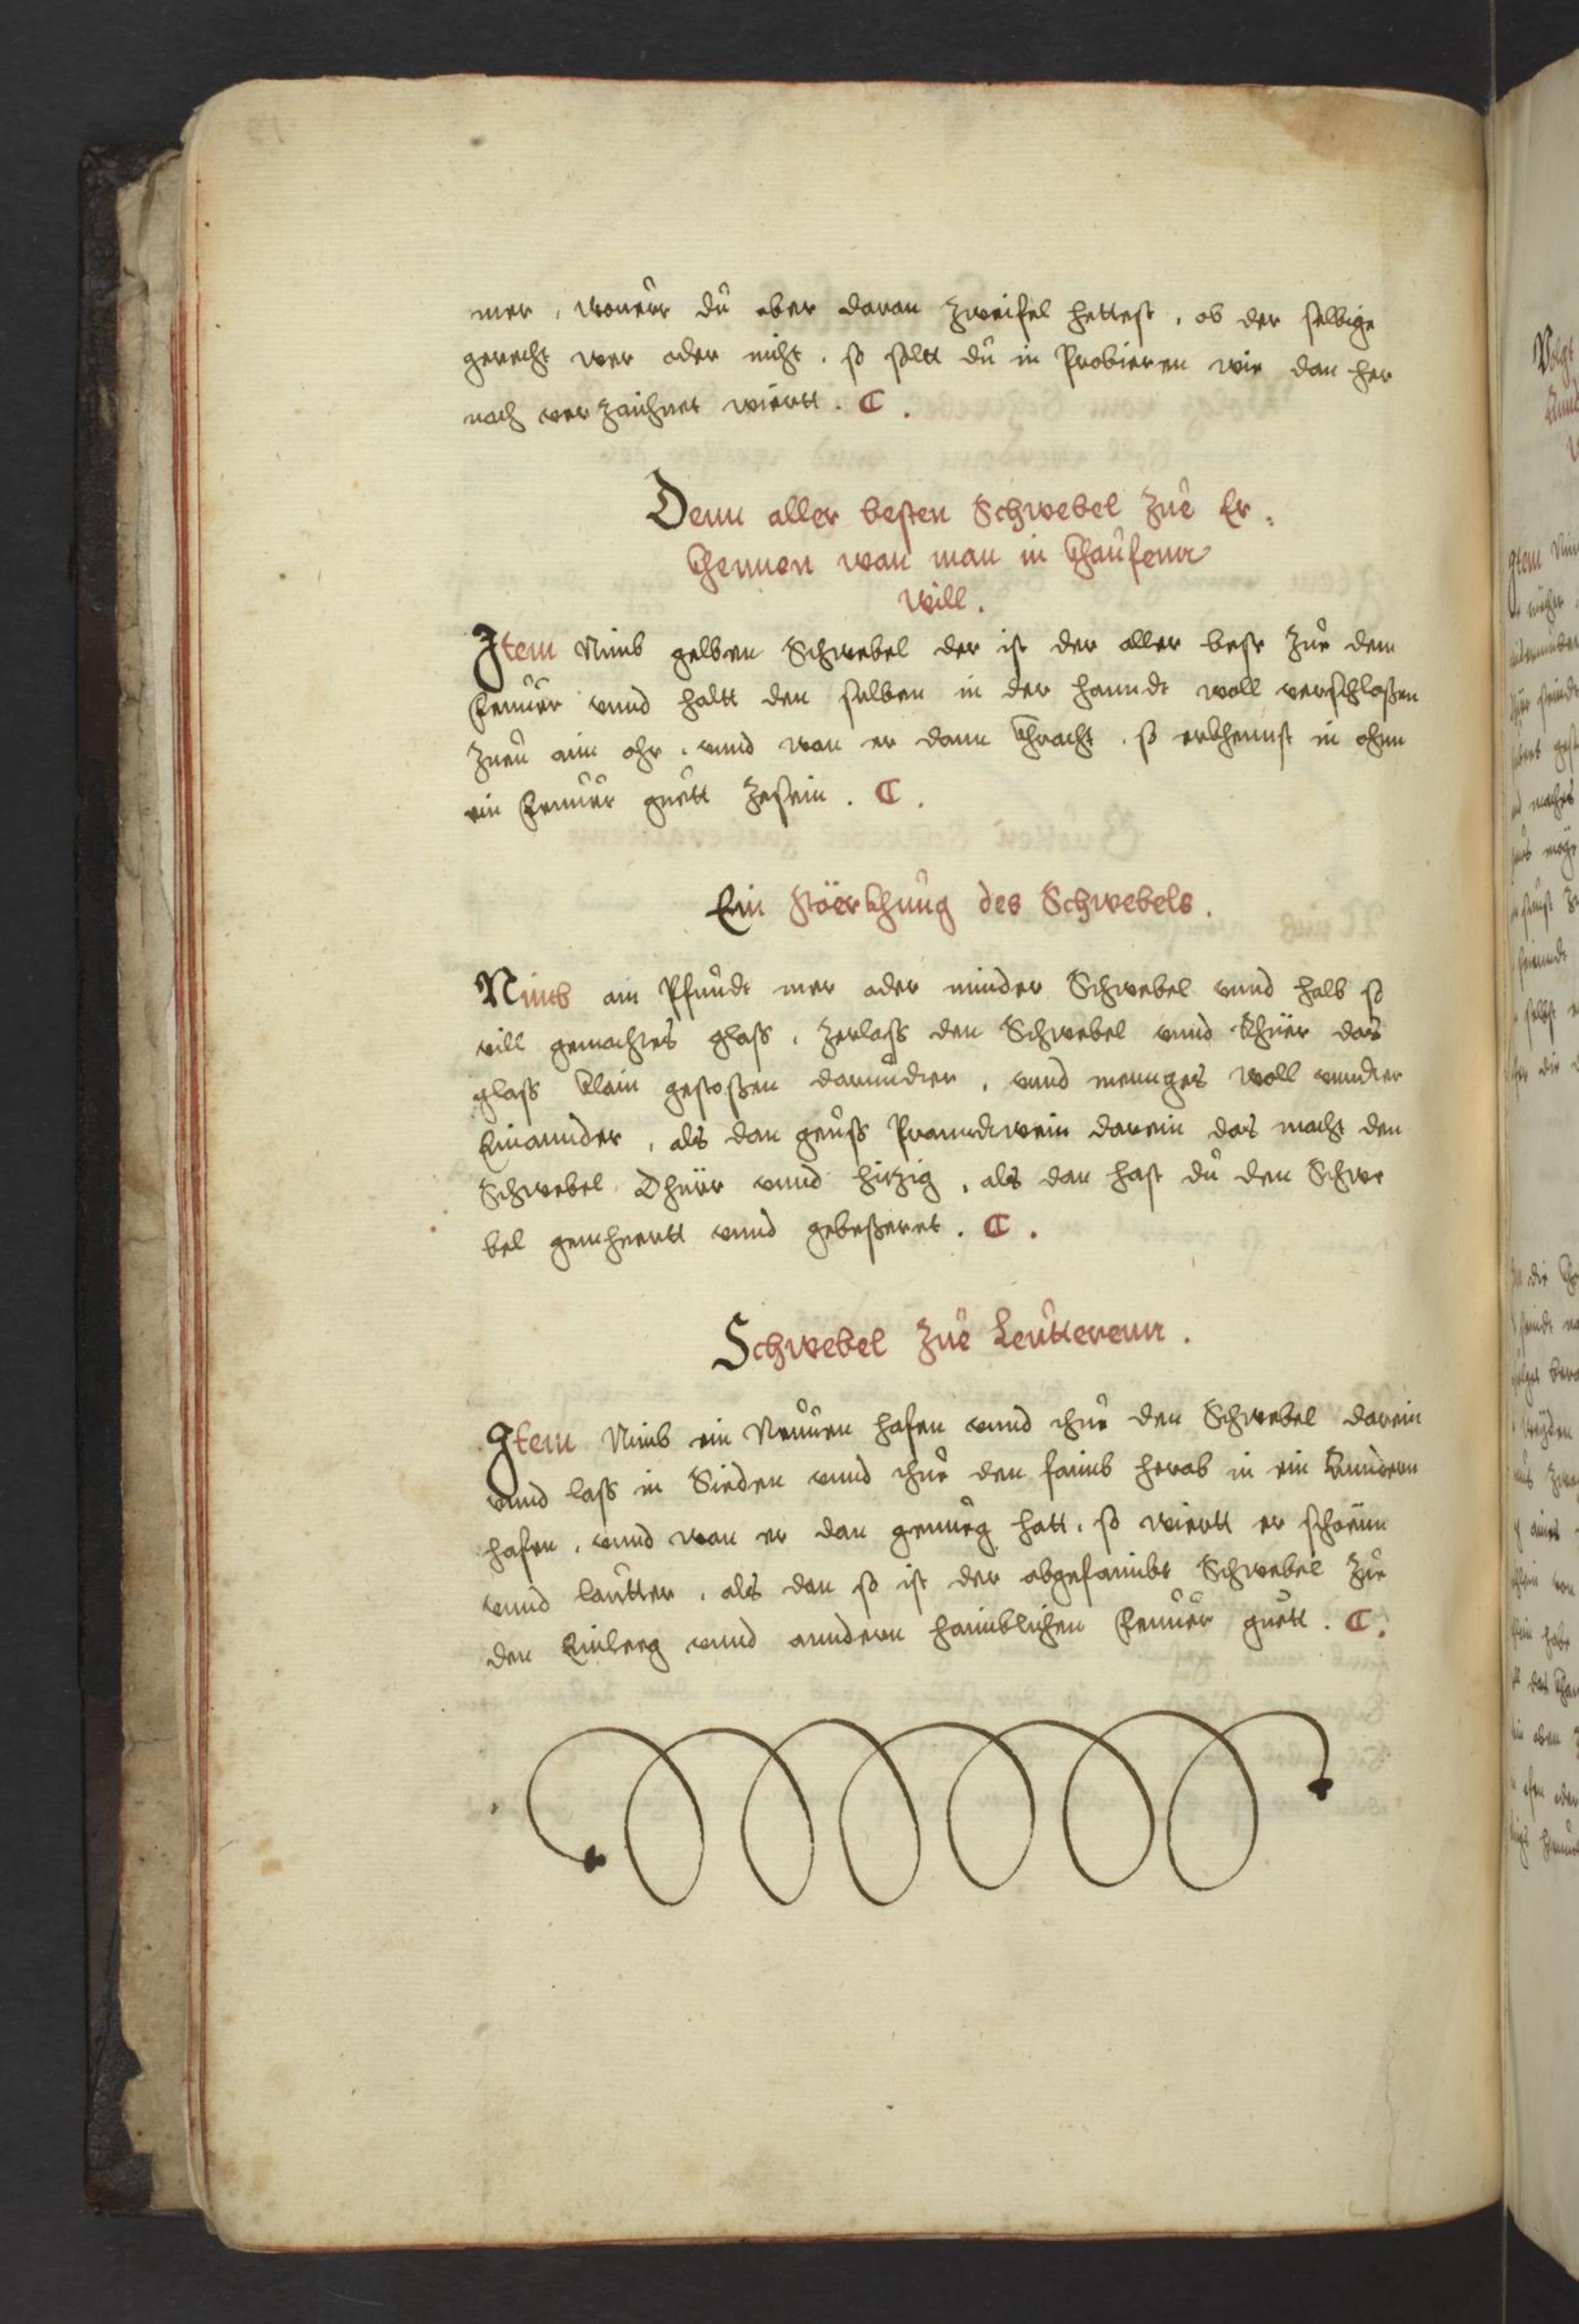 mer, wouerr dů aber daran zweifel hettest, ob der selbige
gerecht wer oder nicht, so soltt dů in Probieren wie dan her
nach verzaichnet wiertt. C.
Denn aller besten Schwebel zůe Er:
khennen wan man in khaůfenn
will.
Item Nimb gelben Schwebel der ist der aller best zůe dem
Feuůer vnnd haltt den selben in der hanndt woll verschloßen
zueů aim ohr, vnnd wan er dann khracht, so erkhennst in ohnn
ein Feuůer guett zesein. C.
Ein störkhůng des Schwebels.
Nimb ain Pfundt mer oder minder Schwebel vnnd halb so
vill gemachtes glass, zerlass den Schwebel vnnd khüer das
glass klain gestoßen darůndter, vnnd mennges woll vnndter
Einannder, als dan geůss Pranndtwein darein das macht den
Schwebel dhüer vnnd hitzig, als dan hast dů den Schwe
bel gemheertt vnnd gebeßeret. C.
Schwebel zůe Leůtterenn.
Item Nimb ein Neuůen hafen vnnd thue den Schwebel darein
vnnd lass in Sieden vnnd thue den faimb herab in ein Anndern
hafen, vnnd wan er dan genueg hatt, so wiertt er schoenn
vnnd lautter, als dan so ist der abgefaimbt Schwebel zůe
den Einleeg vnnd anndern haimblichen Feuůer guett. C.